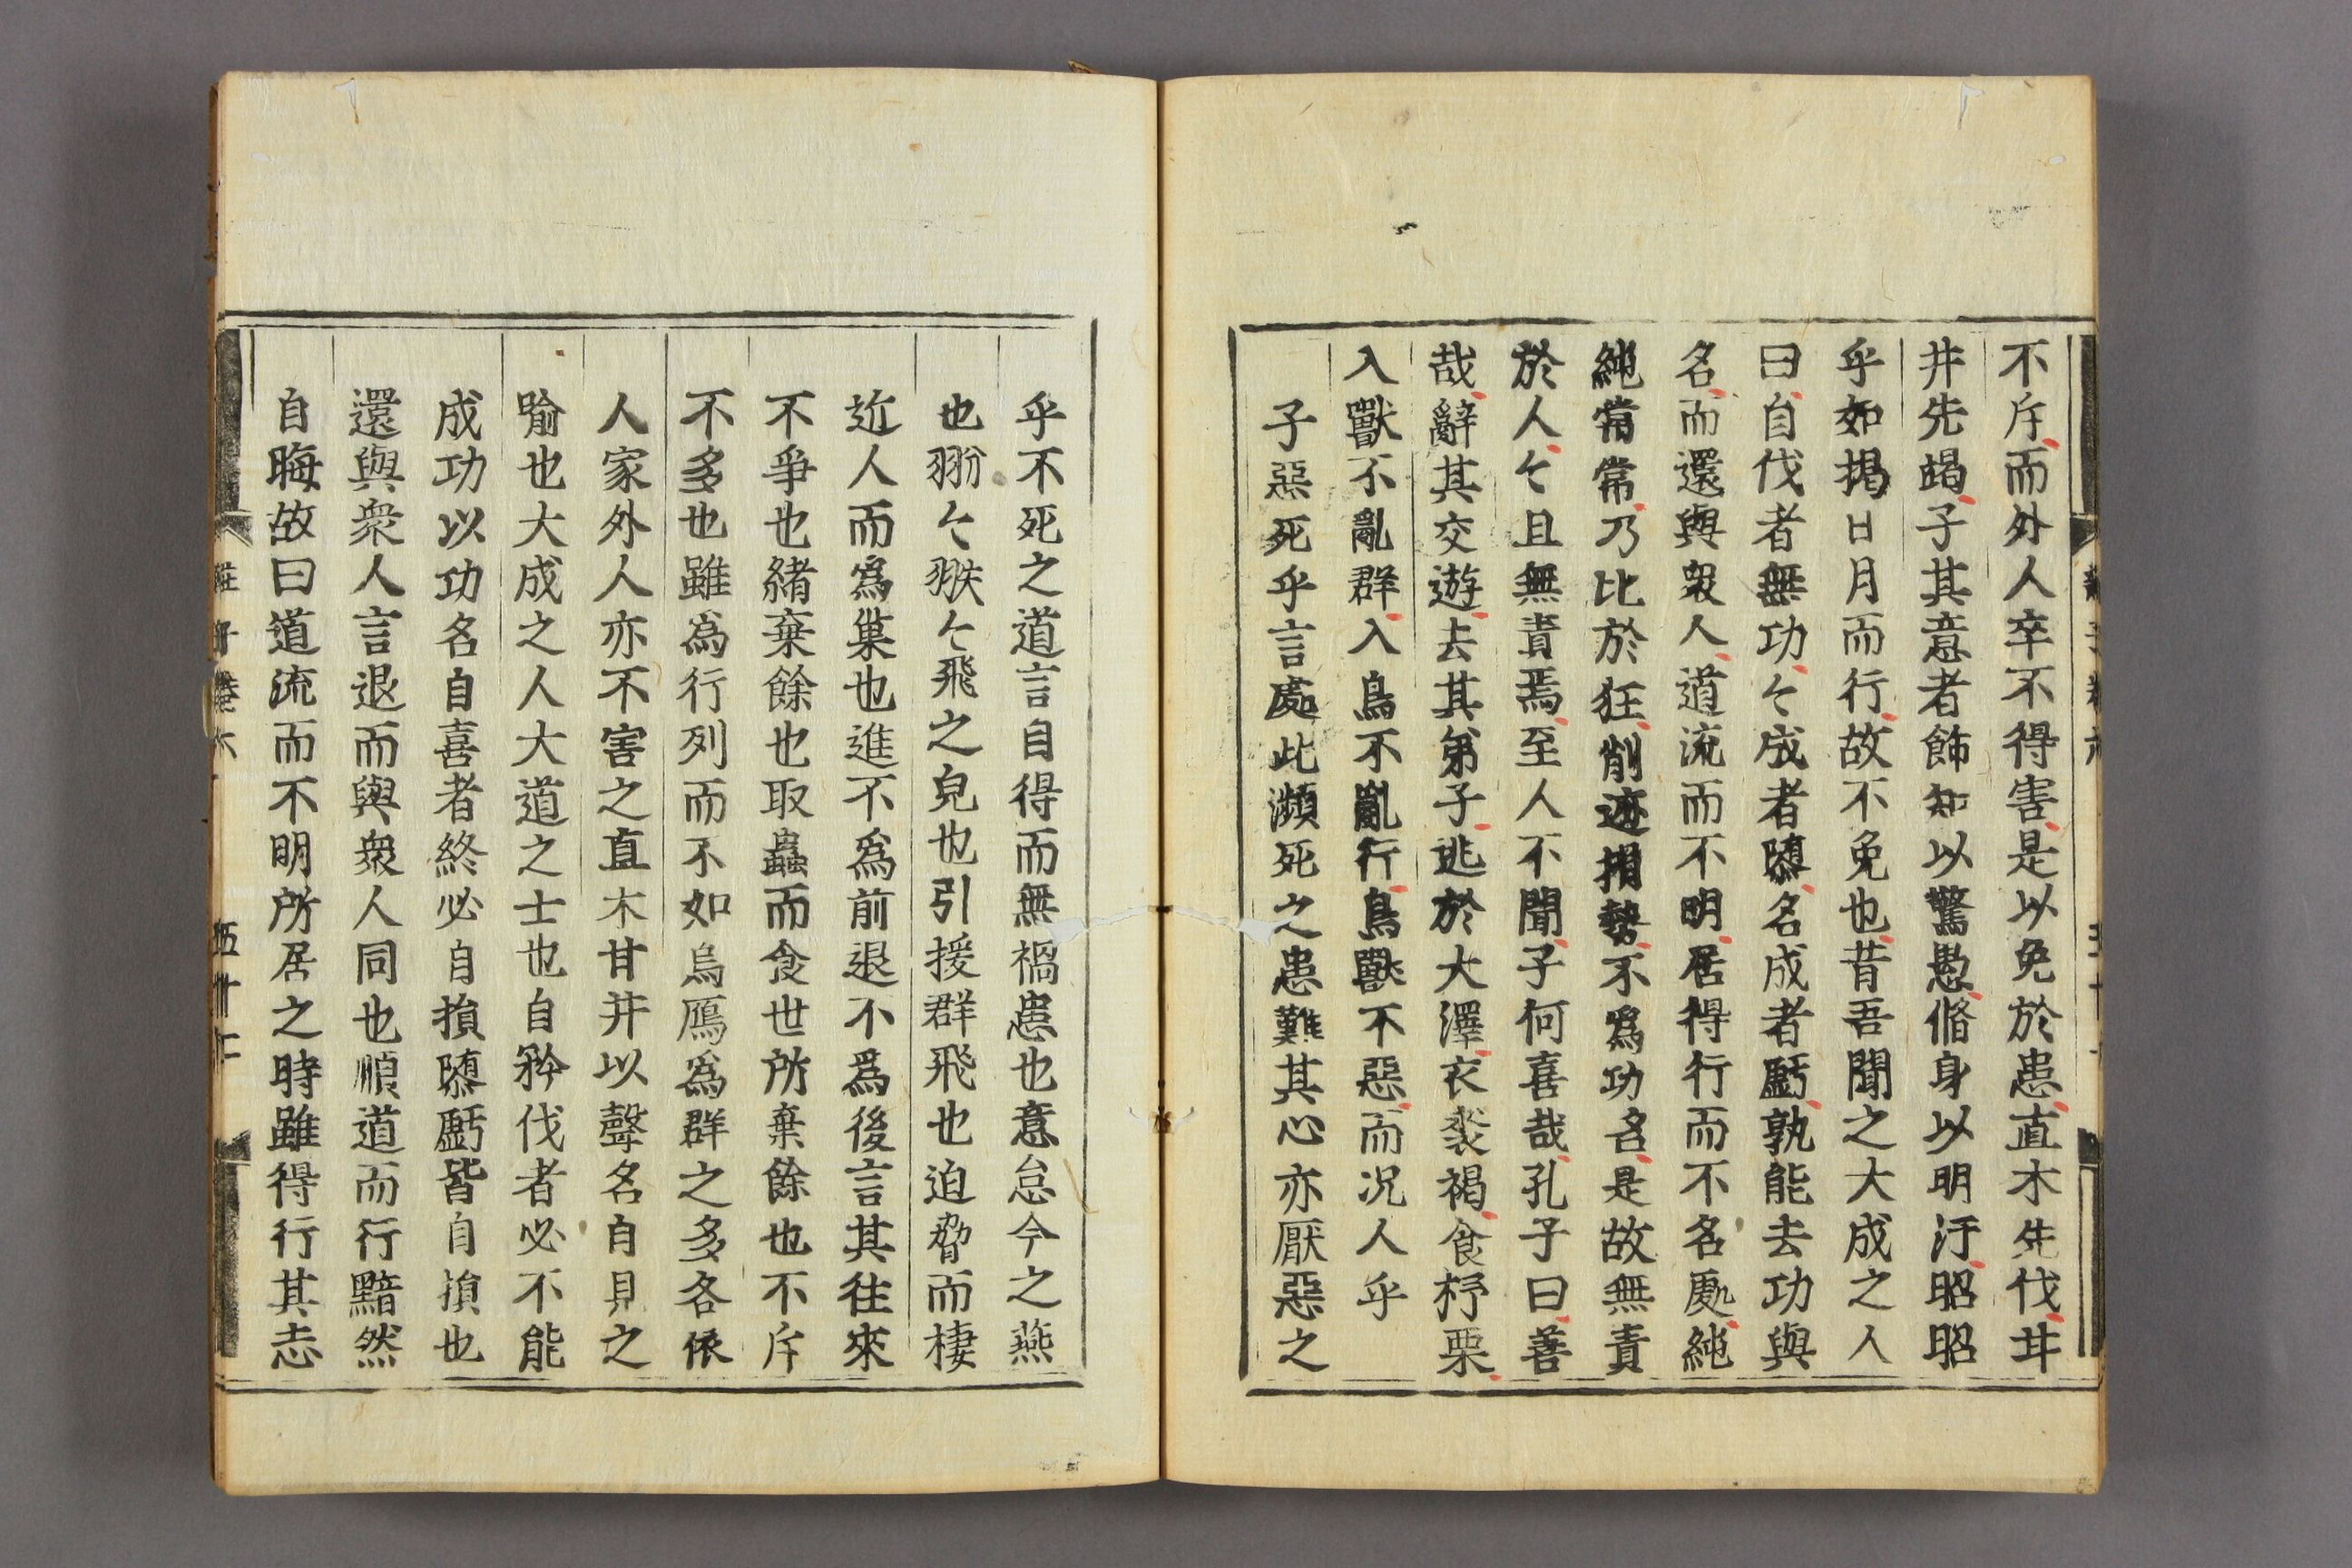 不斥而外人卒不得害是以免於患直木先伐甘
井先竭子其意者飾知以驚愚脩身以明汙昭昭
乎如揭日月而行故不免也昔吾聞之大成之人
曰自伐者無功〻成者隳名成者虧孰能去功與
名而還與衆人道流而不明居得行而不名處純
純常常乃比於狂削迹捐勢不爲功名是故無責
於人〻且無責焉至人不聞子何喜哉孔子曰善
哉辭其交遊去其弟子逃於大澤衣裘褐食杼栗
入獸不亂群入鳥不亂行鳥獸不惡而况人乎
子惡死乎言處此瀕死之患難其心亦厭惡之
乎不死之道言自得而無禍患也意怠今之燕
也翂〻翐〻飛之皃也引援群飛也迫脅而棲
近人而爲巢也進不爲前退不爲後言其往來
不爭也緒棄餘也取蟲而食世所棄餘也不斥
不多也雖爲行列而不如烏鴈爲群之多各依
人家外人亦不害之直木甘井以聲名自見之
喻也大成之人大道之士也自矜伐者必不能
成功以功名自喜者終必自損隳虧皆自損也
還與衆人言退而與衆人同也順道而行黯然
自晦故曰道流而不明所居之時雖得行其志
莊子卷六
五十七